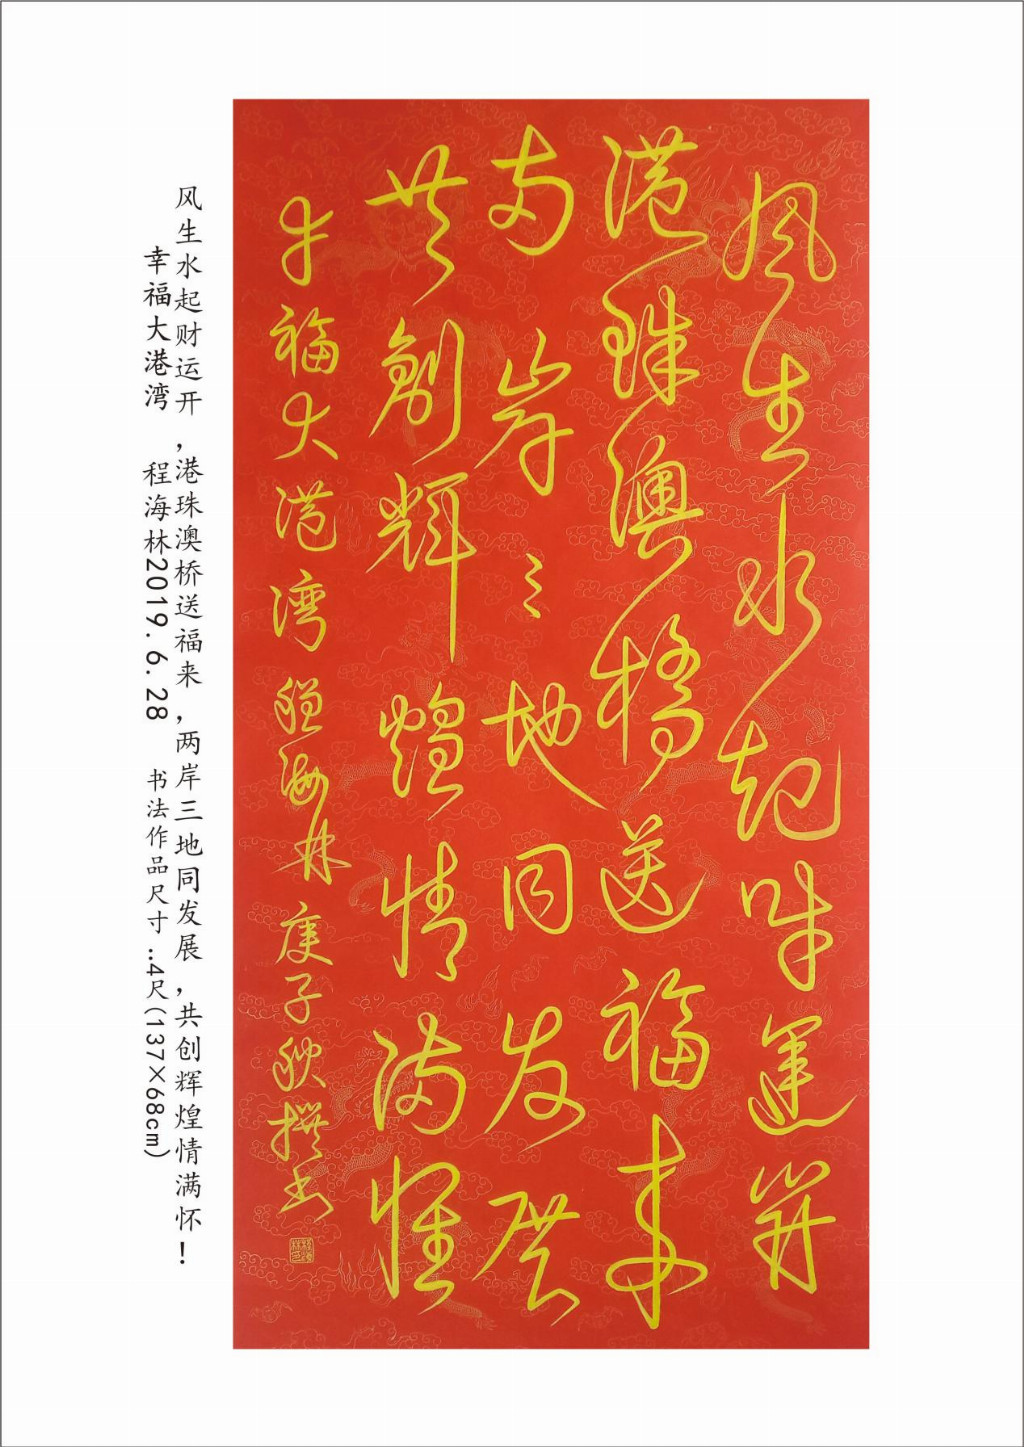 风生水起财運開
港珠澳橋送福来
两岸三地同发展
共創輝煌情满怀
幸福大港湾 程海林 庚子秋撰书
风生水起财运开,港珠澳桥送福来,两岸三地同发展,共创辉煌情满怀!
幸福大港湾 程海林2019.6.28 书法作品尺寸..4尺(137×68cm)